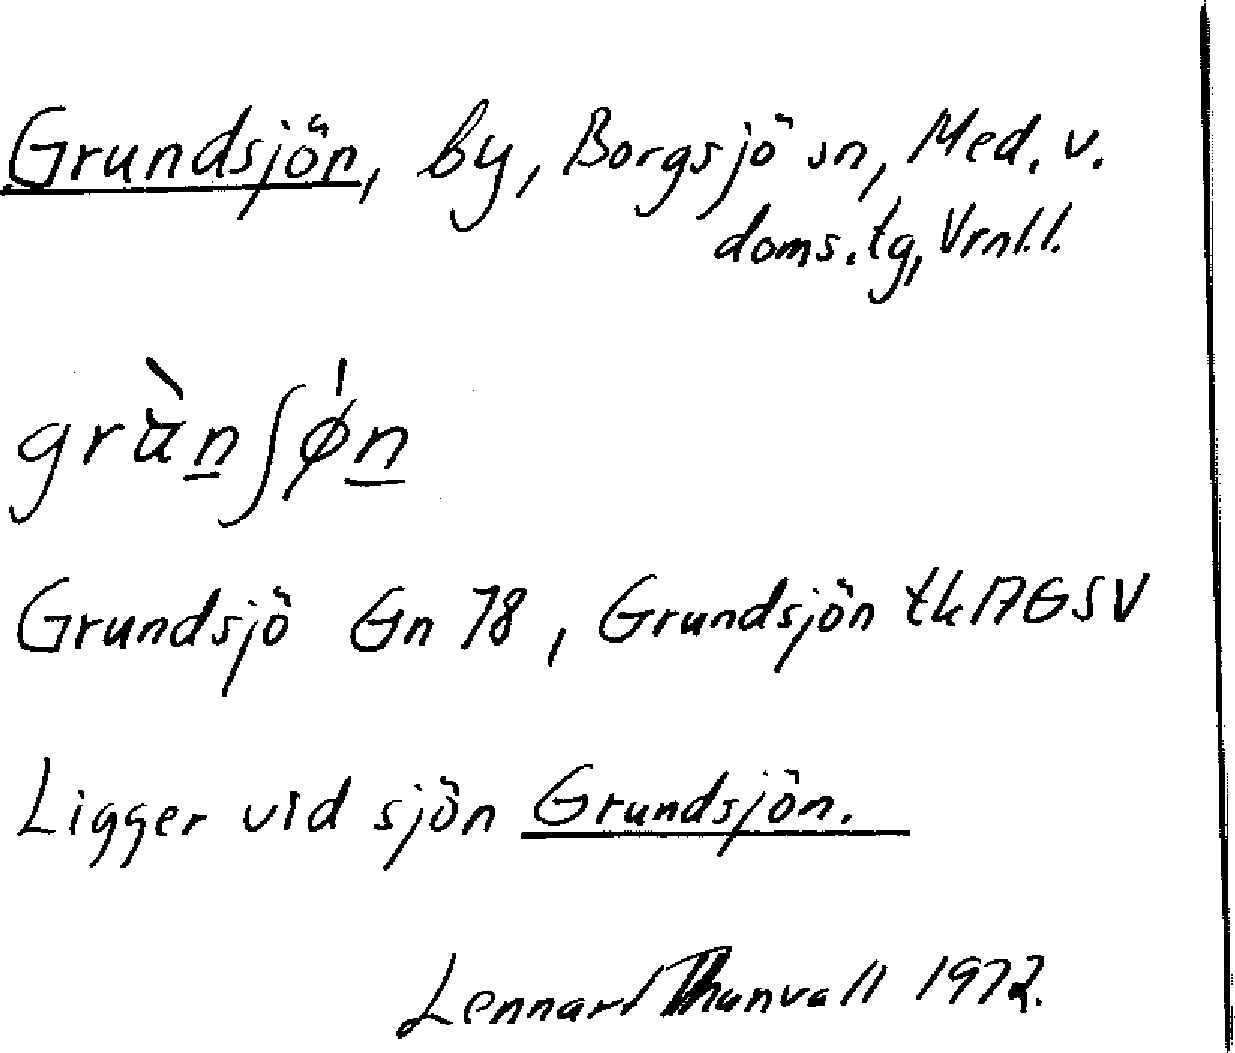 Grundsjön, by, Borgsjö sn, Med. v.
doms. tg, Vrnl.l.
grànʃǿn
Grundsjö Gn 78, Grundsjön tkAGSV
Ligger vid sjön Grundsjön.
Lennart Thunvall 1972.